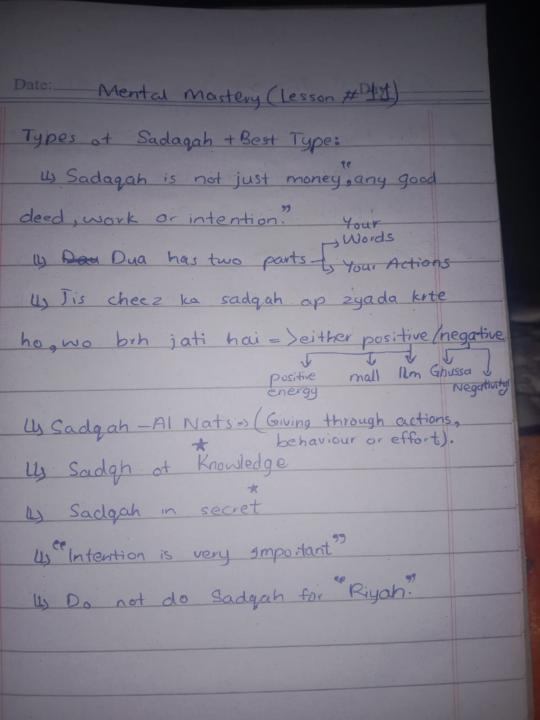 Date:
Mental Mastery (Lesson #11)
Types of Sadaqah + Best Type:
↳ Sadaqah is not just money, "any good
deed, work or intention."
↳ Dua has two parts → Your Words
→ Your Actions
↳ Jis cheez ka sadqah ap zyada krte
ho, wo brh jati hai => either positive/negative
positive energy mall Ilm Ghussa Negativity
↳ Sadqah - Al Nafs => (Giving through actions,
behaviour or effort).
↳ Sadqh of Knowledge
↳ Sadqah in secret
↳ "Intention is very important"
↳ Do not do Sadqah for "Riyah."